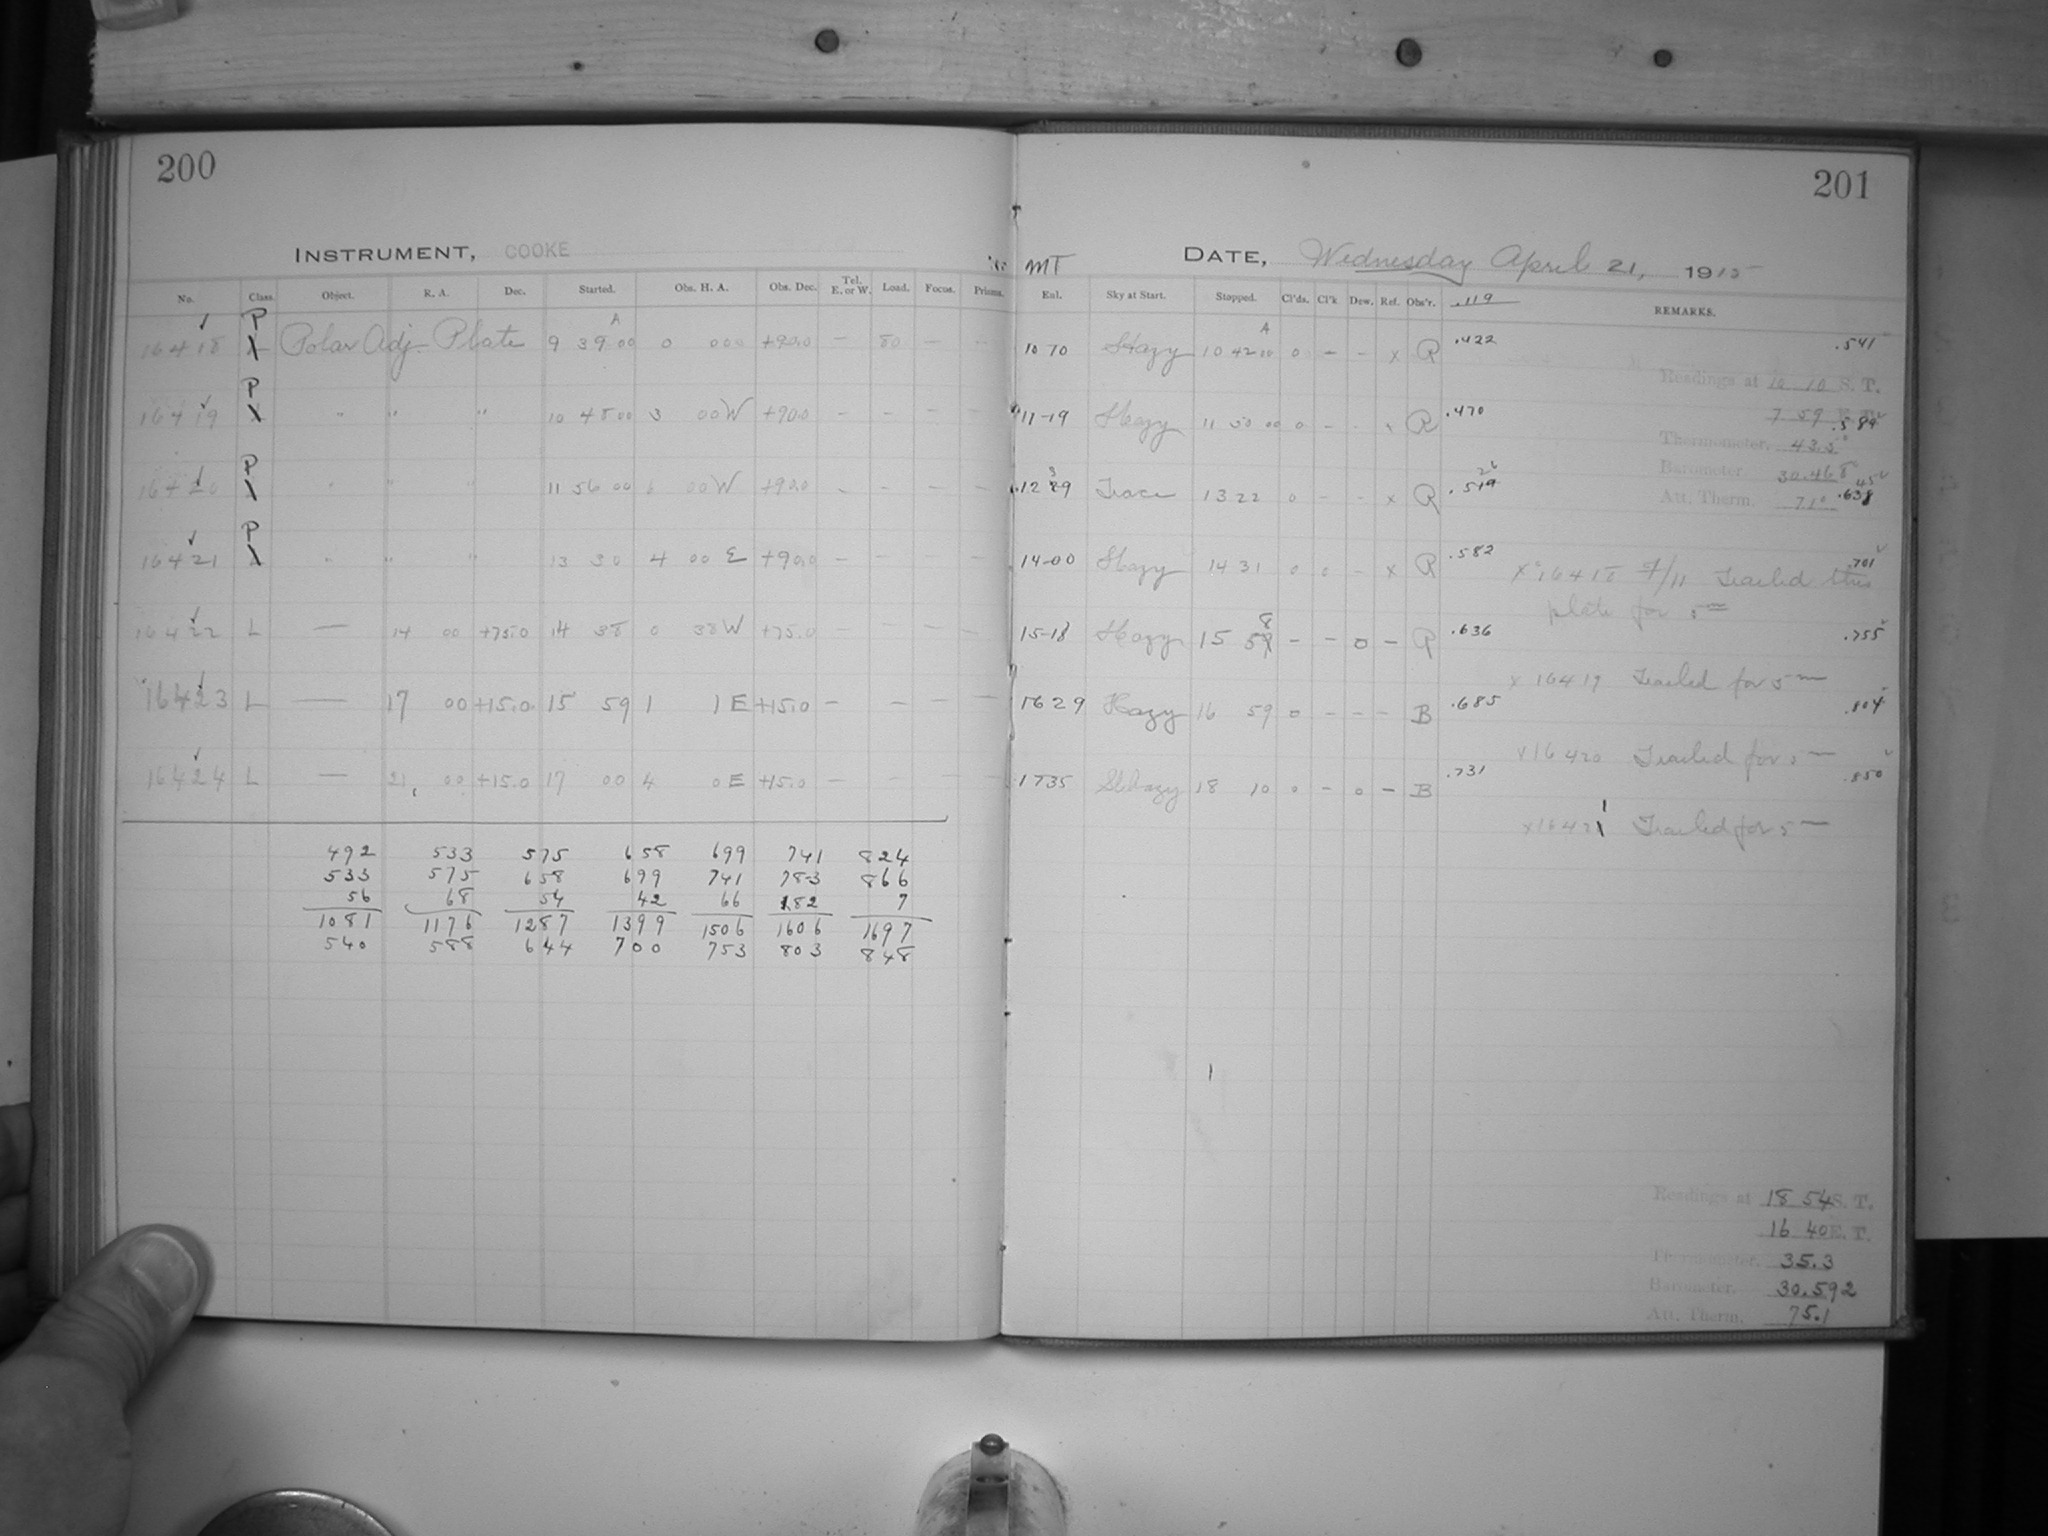 200
INSTRUMENT, COOKE
No. Class. Object. R. A. Dec. Started. Obs. H. A. Obs. Dec. Tel. E. or W. Load. Focus. Prisms.
16418 Polar Adj. Plate 9 39 00 0 000 +90.0 — 80 — —
16419 " " " 10 48 00 3 00 W +90.0 — — — —
16420 " " " 11 56 00 6 00 W +90.0 — — — —
16421 " " " 13 30 4 00 E +90.0 — — — —
16422 L — 14 00 +75.0 14 38 0 38 W +75.0 — — — —
16423 L — 17 00 +15.0 15 59 1 1 E +15.0 — — — —
16424 L — 21 00 +15.0 17 00 4 0 E +15.0 — — — —
492 533 575 658 699 741 824
533 575 658 699 741 783 866
56 68 54 42 66 82 7
1081 1176 1287 1399 1506 1606 1697
540 588 644 700 753 803 848
201
MT DATE, Wednesday April 21, 1915
Exl. Sky at Start. Stopped. Cl'ds. Cl'k Dew. Ref. Obs'r. .119 REMARKS.
10 70 Hazy 10 42 10 0 — — x R .422 .541
Readings at 10 10 S. T.
11-19 Hazy 11 50 00 0 — — x R .470 7 59 E. T. .589
Thermometer, 43.5°
Barometer, 30.468
Trace 13 22 0 — — x R
Att. Therm. 71°
14-00 Hazy 14 31 0 0 — x R .582 .701
x 16418 Trailed this
plate for 5m
15-18 Hazy 15 58 — — 0 — R .636 .755
x 16419 Trailed for 5m
1629 Hazy 16 59 0 — — — B .685 .804
x 16420 Trailed for 5m
1735 Sl Hazy 18 10 0 — 0 — B .731 .850
x 16421 Trailed for 5m
Readings at 18 54 S. T.
16 40 E. T.
Thermometer, 35.3
Barometer, 30.592
Att. Therm. 75.1